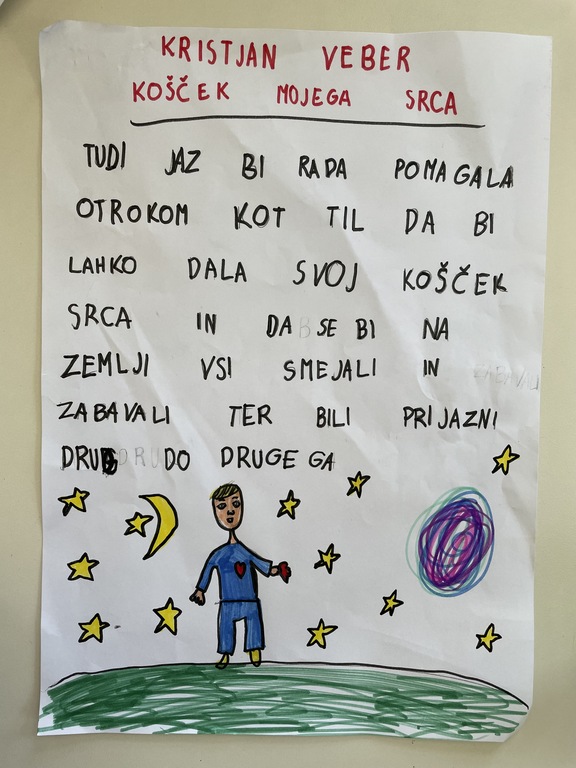 KRISTJAN VEBER
KOŠČEK MOJEGA SRCA
TUDI JAZ BI RADA POMAGALA
OTROKOM KOT TIL DA BI
LAHKO DALA SVOJ KOŠČEK
SRCA IN DA SE BI NA
ZEMLJI VSI SMEJALI IN
ZABAVALI TER BILI PRIJAZNI
DRUG DO DRUGEGA